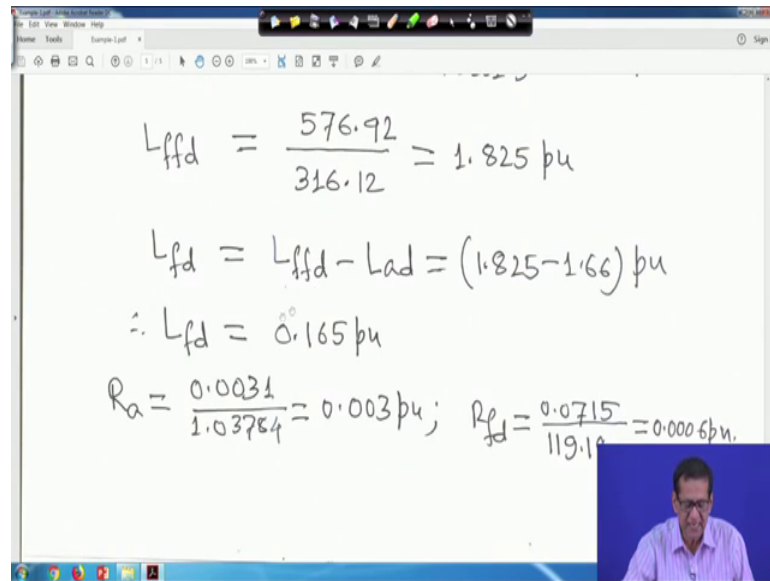 Example-1.pdf - Adobe Acrobat Reader DC
File Edit View Window Help
Home Tools Example-1.pdf × Sign
L_ffd = 576.92 / 316.12 = 1.825 pu
L_fd = L_ffd - Lad = (1.825 - 1.66) pu
∴ L_fd = 0.165 pu
R_a = 0.0031 / 1.03784 = 0.003 pu; R_fd = 0.0715 / 119.1 = 0.0006 pu.